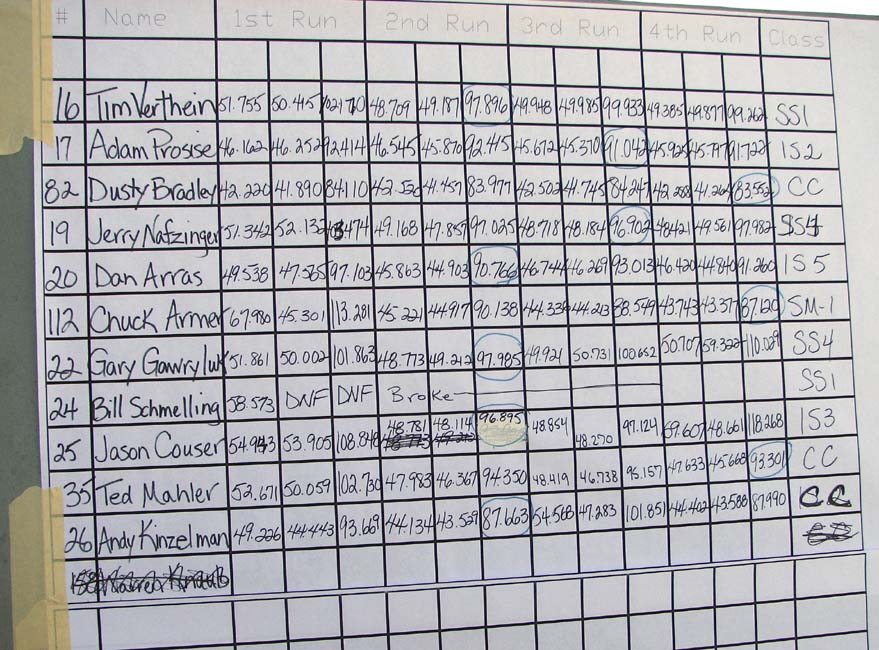 # Name 1st Run 2nd Run 3rd Run 4th Run Class
16 Tim Verthein 51.755 50.415 48.709 49.187 97.896 49.948 49.985 99.933 49.385 49.877 99.262 SS1
17 Adam Prosise 46.162 46.252 92414 46.545 45.870 92.415 45.672 45.370 91.042 45.925 91.722 IS2
82 Dusty Bradley 42.220 41.890 84110 42.520 41.457 83.977 42.502 41.745 84.247 42.288 41.264 83.552 CC
19 Jerry Nafzinger 51.342 52.132 49.168 47.857 97.025 48.718 48.184 96.902 48421 49.561 97.982 SS4
20 Dan Arras 49.538 47.565 97.103 45.863 44.903 90.766 46.744 46.269 93.013 46.420 44.840 91.260 IS5
112 Chuck Armer 67.980 45.301 113.281 45.221 44.917 90.138 44.336 44.213 88.549 43.743 43.377 87.120 SM-1
22 Gary Gawryluk 51.861 50.002 101.863 48.773 49.212 97.985 49.921 50.731 100.652 50.707 59.322 110.029 SS4
24 Bill Schmelling 58.573 DNF DNF Broke SS1
25 Jason Couser 54.943 53.905 108.848 48.781 48.114 96.895 48.854 48.270 97.124 69.607 48.661 118.268 IS3
35 Ted Mahler 52.671 50.059 102.730 47.983 46.367 94.350 48.419 46.738 95.157 47.633 45.668 93.301 CC
26 Andy Kinzelman 49.226 44.443 93.669 44.134 43.529 87.663 54.568 47.283 101.851 44.402 43.588 87.990 CC